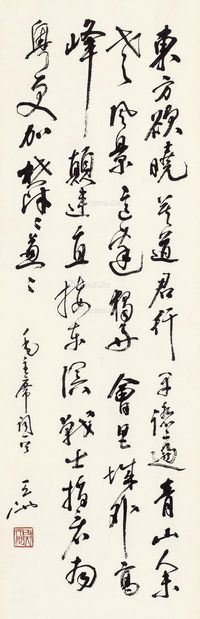 東方欲曉莫道君行早踏遍青山人未
老風景這邊獨好會昌城外高
峰顛連直接东溟戰士指看南
粵更加郁〻葱〻
毛主席詞一首